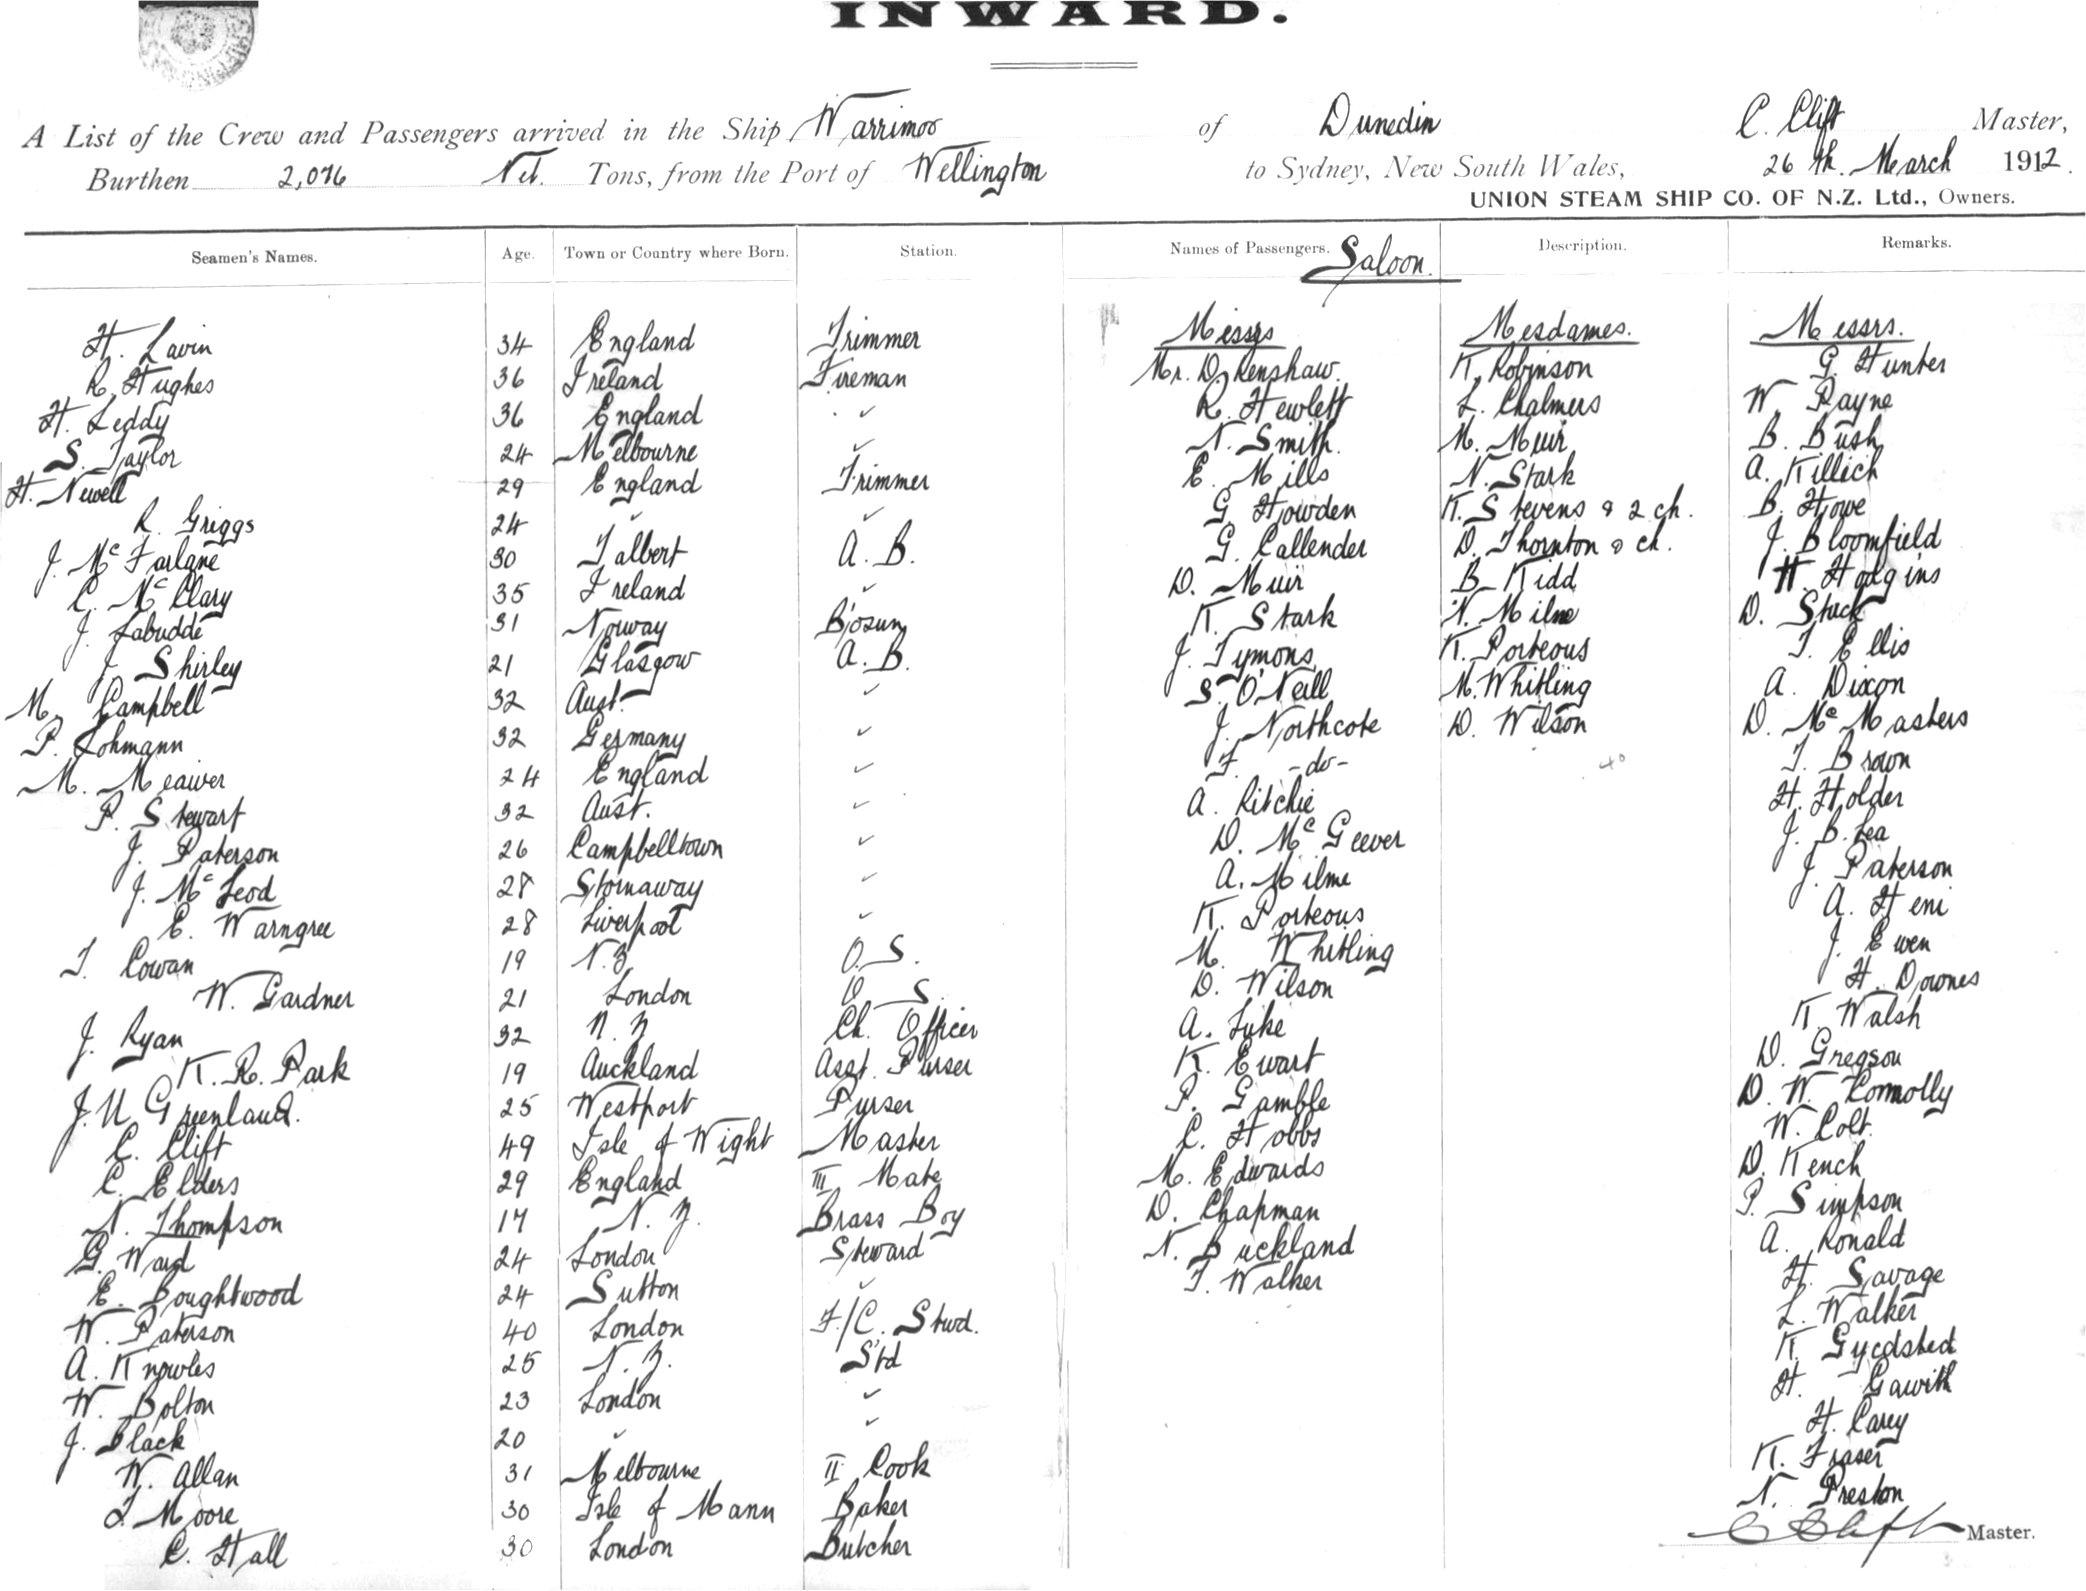 INWARD.
A List of the Crew and Passengers arrived in the Ship Warrimoo of Dunedin C. Clift Master,
Burthen 2,076 Net. Tons, from the Port of Wellington to Sydney, New South Wales, 26th. March 1912.
UNION STEAM SHIP CO. OF N.Z. Ltd., Owners.
Seamen's Names. Age. Town or Country where Born. Station. Names of Passengers. Saloon. Description. Remarks.
Messrs Mesdames. Messrs.
H. Lavin 34 England Trimmer Mr. D. Renshaw. K. Robinson G. Hunter
R. Hughes 36 Ireland Fireman R. Hewlett L. Chalmers W. Payne
H. Leddy 36 England ✓ N. Smith. M. Muir B. Bush
S. Taylor 24 Melbourne ✓ E. Mills N. Stark A. Killich
H. Newell 29 England Trimmer G. Howden K. Stevens & 2 ch. B. Howe
R. Griggs 24 ✓ ✓ G. Callender D. Thornton & ch. J. Bloomfield
J. McFarlane 30 Talbert A. B. D. Muir B. Kidd H. Hodgins
C. McClary 35 Ireland ✓ K. Stark N. Milne D. Stuck
J. Labudde 31 Norway B'osun J. Tymons K. Porteous T. Ellis
J. Shirley 21 Glasgow A. B. S. O'Neill M. Whitling A. Dixon
M. Campbell 32 Aust. ✓ J. Northcote D. Wilson D. McMasters
P. Lohmann 32 Germany ✓ F. -do- T. Brown
M. Meawer 24 England ✓ A. Ritchie H. Holder
P. Stewart 32 Aust. ✓ D. McGeever J. B. Lea
J. Paterson 26 Campbelltown ✓ A. Milme J. Paterson
J. McLeod 28 Stornaway ✓ K. Porteous A. Heni
E. Warngree 28 Liverpool ✓ M. Whitling J. Ewen
T. Cowan 19 N.Z O. S. D. Wilson H. Downes
W. Gardner 21 London O S. A. Luke K. Walsh
J. Ryan 32 N. Z Ch. Officer K. Ewart D. Gregson
K. R. Park 19 Auckland Asst. Purser P. Gamble D. W. Connolly
J. U Greenland. 25 Westport Purser C. Hobbs W. Colt.
C. Clift 49 Isle of Wight Master M. Edwards D. Kench
C. Elders 29 England III Mate D. Chapman P. Simpson
N. Thompson 17 N. Z. Brass Boy N. Buckland A. Ronald
G. Ward 24 London Steward T. Walker H. Savage
E. Boughtwood 24 Sutton ✓ L. Walker
W. Paterson 40 London F./C. Stwd. K. Gycdsted
A. Knowles 25 N. Z. Std H. Gawith
W. Bolton 23 London ✓ H. Carey
J. Black 20 ✓ ✓ K. Fraser
W. Allan 31 Melbourne II Cook N. Preston
T. Moore 30 Isle of Mann Baker C Clift Master.
C. Hall 30 London Butcher